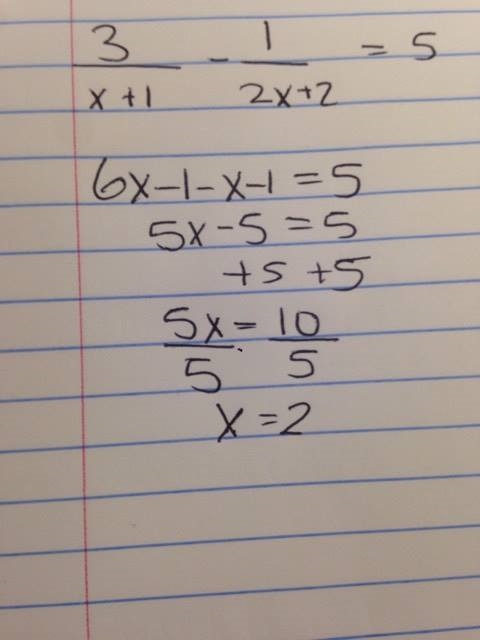 3/(x+1) - 1/(2x+2) = 5
6x-1-x-1=5
5x-5=5
+5 +5
5x/5 = 10/5
x=2